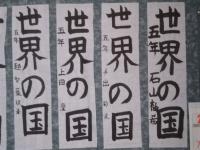 世界の国
五年 石山
世界の国
五年
世界の国
五年 上田
世界の国
五年